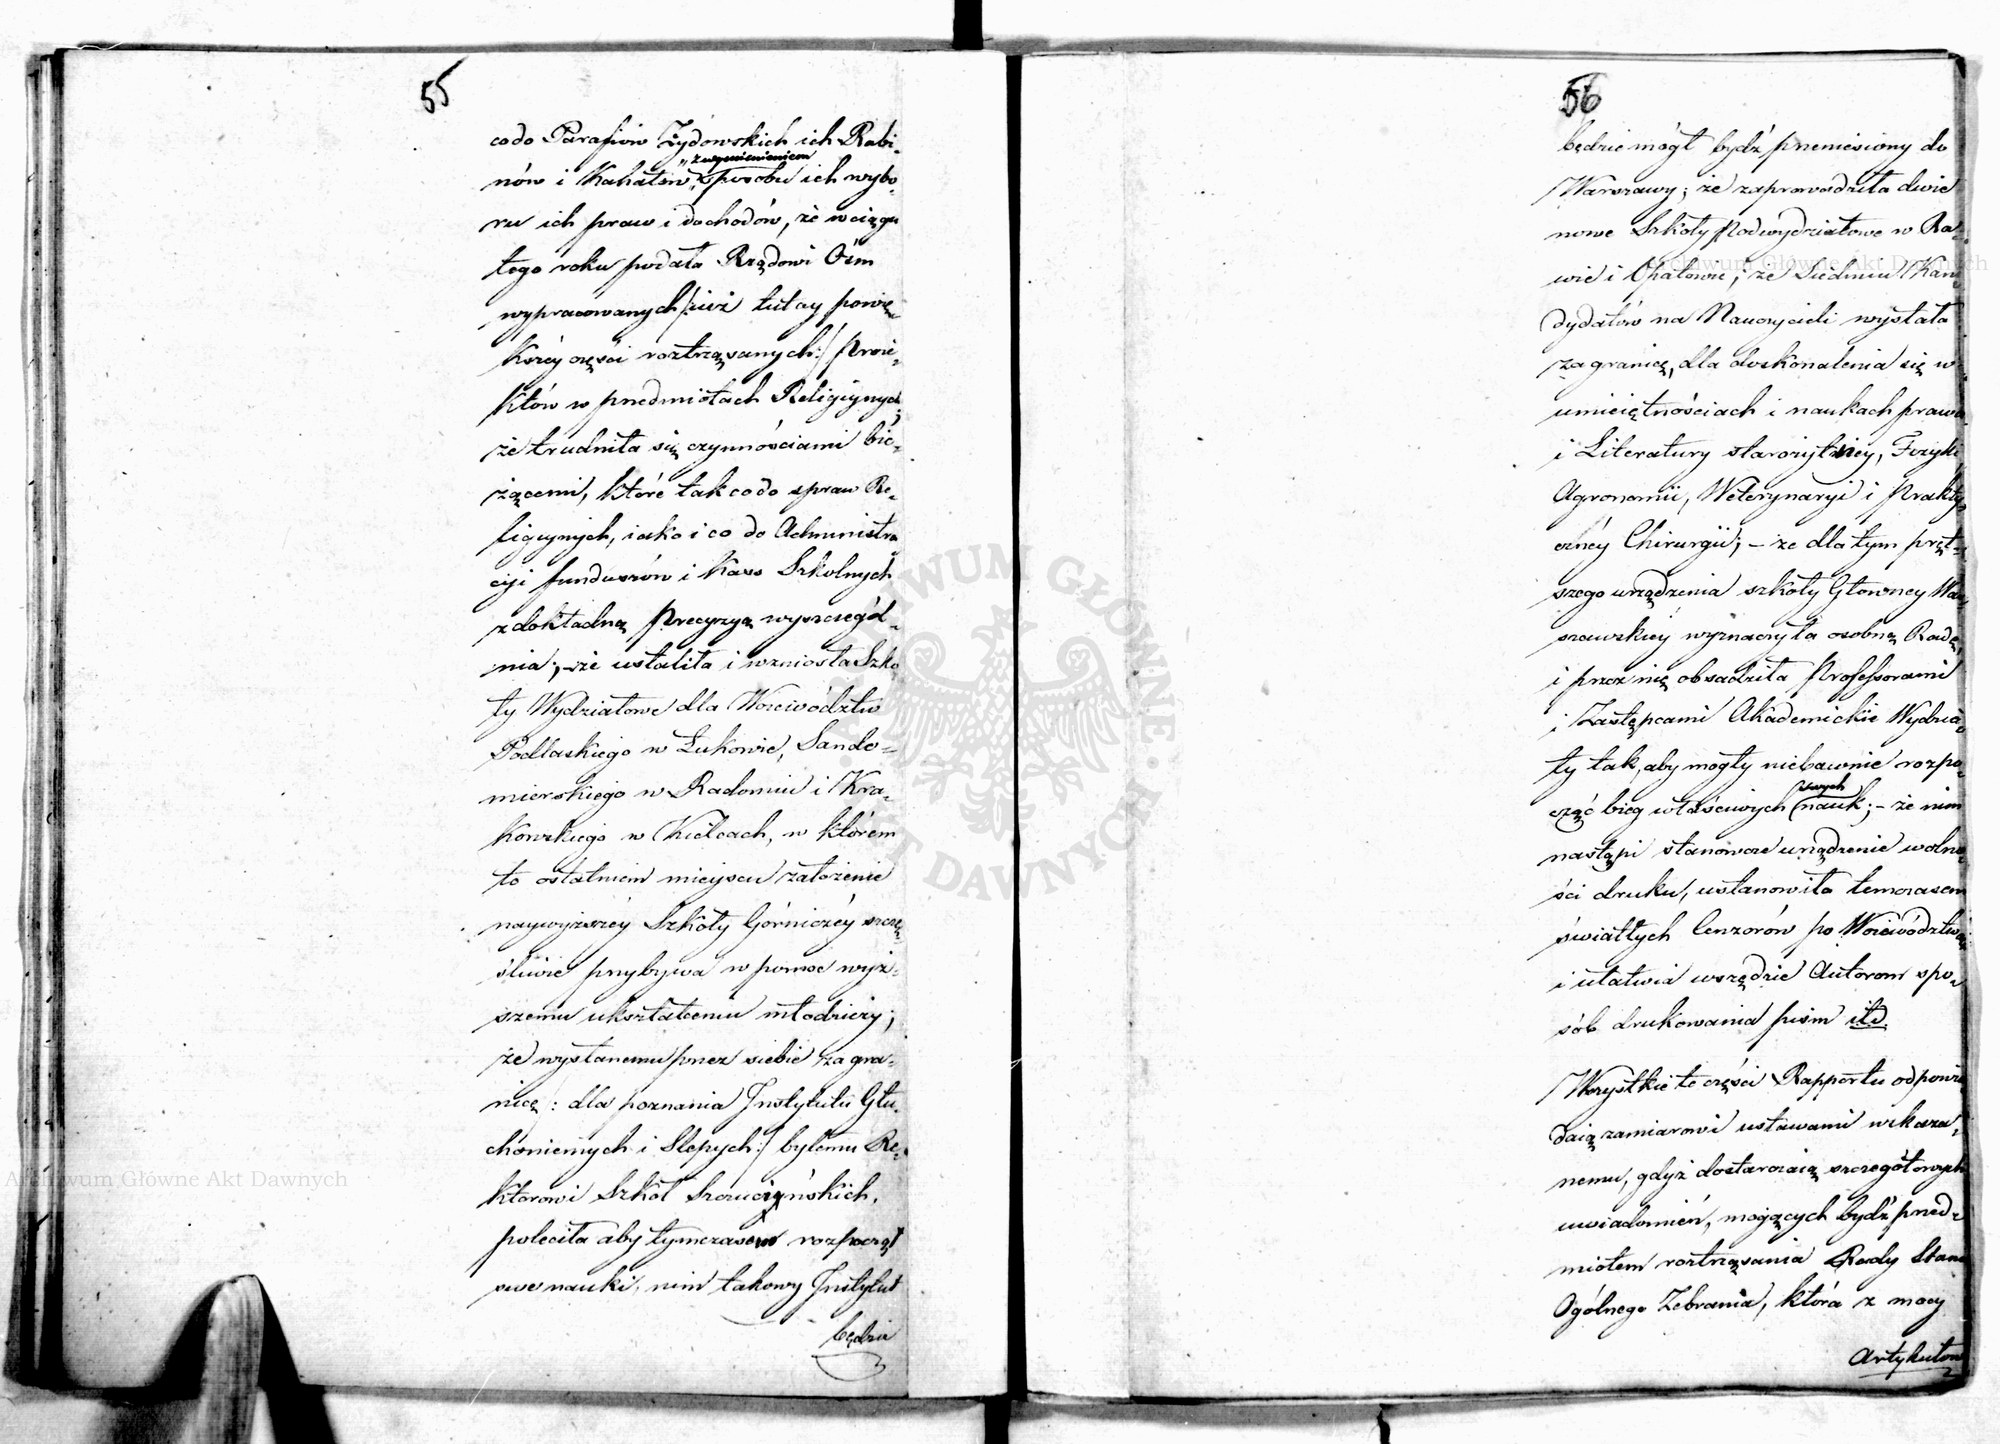 55
co do Parafiów Żydowskich ich Rabi-
nów i Kahałów, z wymienieniem sposobu ich wybo-
ru ich praw i dochodów, że w ciągu
tego roku podała Rządowi Ośm
wypracowanych /: iuż tutay powię-
kszéy części roztrząsanych :/ Proie-
któw w przedmiotach Religiynych;
że trudniła się czynnościami bie-
żącemi, które tak co do spraw Re-
ligiynych, iako i co do Administra-
cyi funduszów i Kass Szkolnych
z dokładną precyzyą wyszczegól-
nia; – że ustaliła i wzniosła Szko-
ły Wydziałowe dla Woiewództw
Podlaskiego w Łukowie, Sando-
mierskiego w Radomiu i Kra-
kowskiego w Kielcach, w którem
to ostatniem mieyscu założenie
naywyższéy Szkoły Górniczéy szczę-
śliwie przybywa w pomoc wyż-
szemu ukształceniu młodzieży;
że wysłanemu przez siebie za gra-
nicę /: dla poznania Instytutu Głu-
choniemych i Slepych :/ byłemu Re-
ktorowi Szkół Szczuczyńskich,
poleciła aby tymczasem rozpoczął
swe nauki, nim takowy Instytut
będzie
56
będzie mógł bydź przeniesiony do
Warszawy; że zaprowadziła dwie
nowe Szkoły Podwydziałowe w Ra-
wie i Opatowie; że Siedmiu Kan-
dydatów na Nauczycieli wysłała
za granicę, dla doskonalenia się w
umieiętnościach i naukach prawa
i Literatury starożytnéy, Fizyki
Agronomii, Weterynaryi i Prakty-
cznéy Chirurgii; – że dla tym pręt-
szego urządzenia szkoły Głowney War-
szawskiéy wyznaczyła osobną Radę,
i przez nią obsadziła Professorami
i Zastępcami Akademickie Wydzia-
ły tak, aby mogły niebawnie rozpo-
cząć bieg właściwych swych nauk; – że nim
nastąpi stanowcze urządzenie wolno-
ści druku, ustanowiła temczasem
światłych Cenzorów po Woiewództwach
i ułatwia wszędzie Autorom spo-
sób drukowania pism itd.
Wszystkie te części Rapportu odpowia-
daią zamiarowi ustawami wskaza-
nemu, gdyż dostarczaią szczegółowych
uwiadomień, mogących bydź przed-
miotem roztrząsania Rady Stanu
Ogólnego Zebrania, która z mocy
Artykułów
Archiwum Główne Akt Dawnych
Archiwum Główne Akt Dawnych
ARCHIWUM GŁÓWNE AKT DAWNYCH